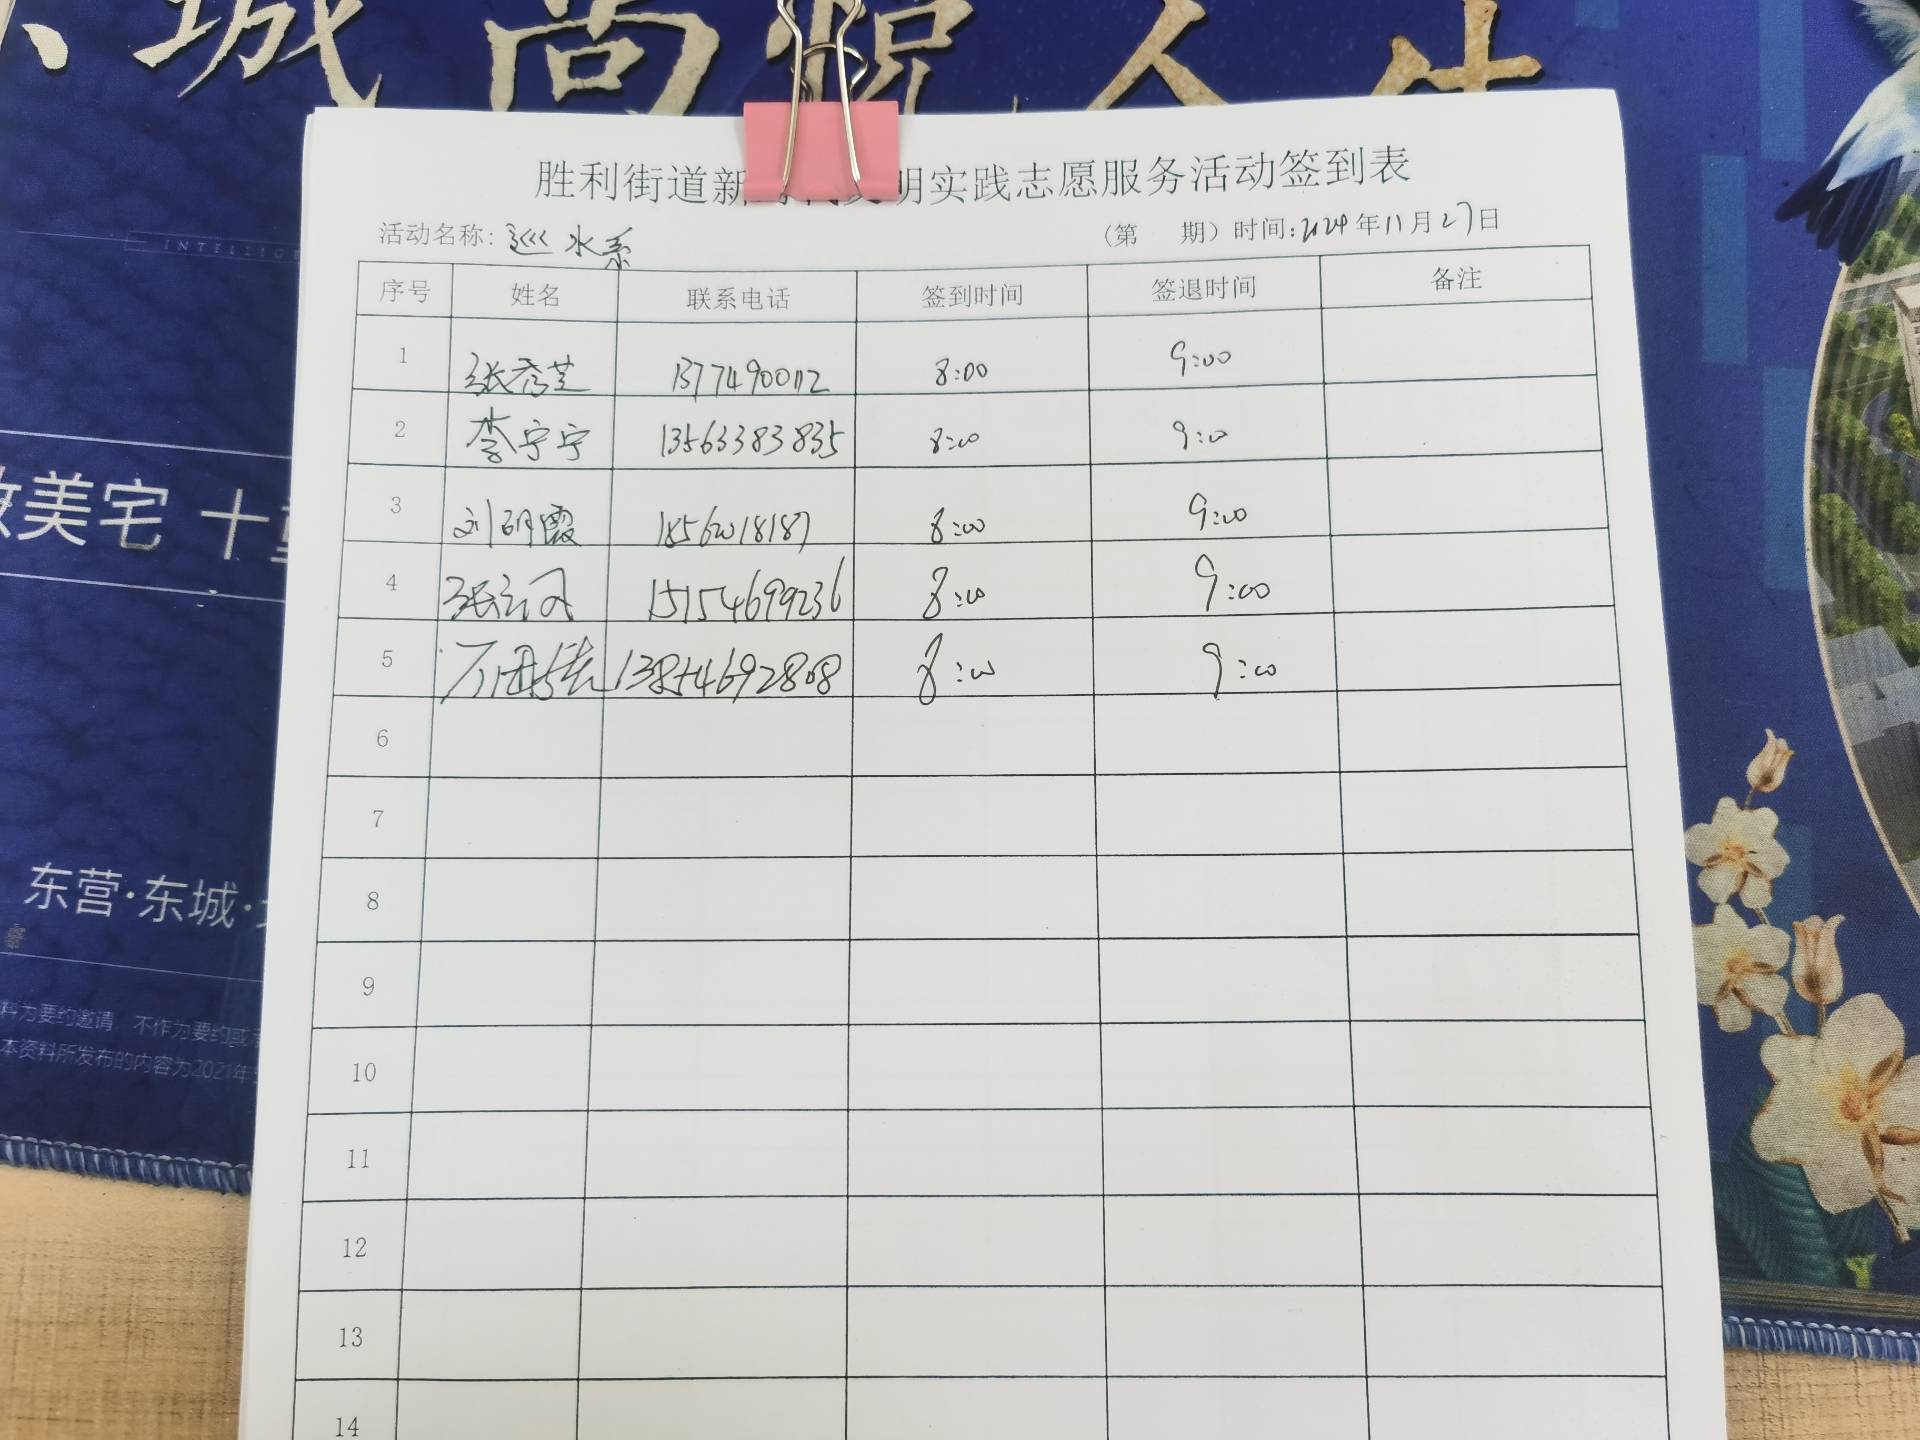 城尚悦人生
胜利街道新明实践志愿服务活动签到表
活动名称: 巡水系
(第 期) 时间: 2024年11月27日
序号 姓名 联系电话 签到时间 签退时间 备注
1 张秀芝 8:00 9:00
2 李宁宁 13563383835 8:00 9:00
3 刘明霞 8:00 9:00
4 15154699236 8:00 9:00
5 13854692808 8:00 9:00
6
7
8
9
10
11
12
13
14
美宅 十
INTELLIGE
东营·东城·
料为要约邀请，不作为要约或
本资料所发布的内容为2021年